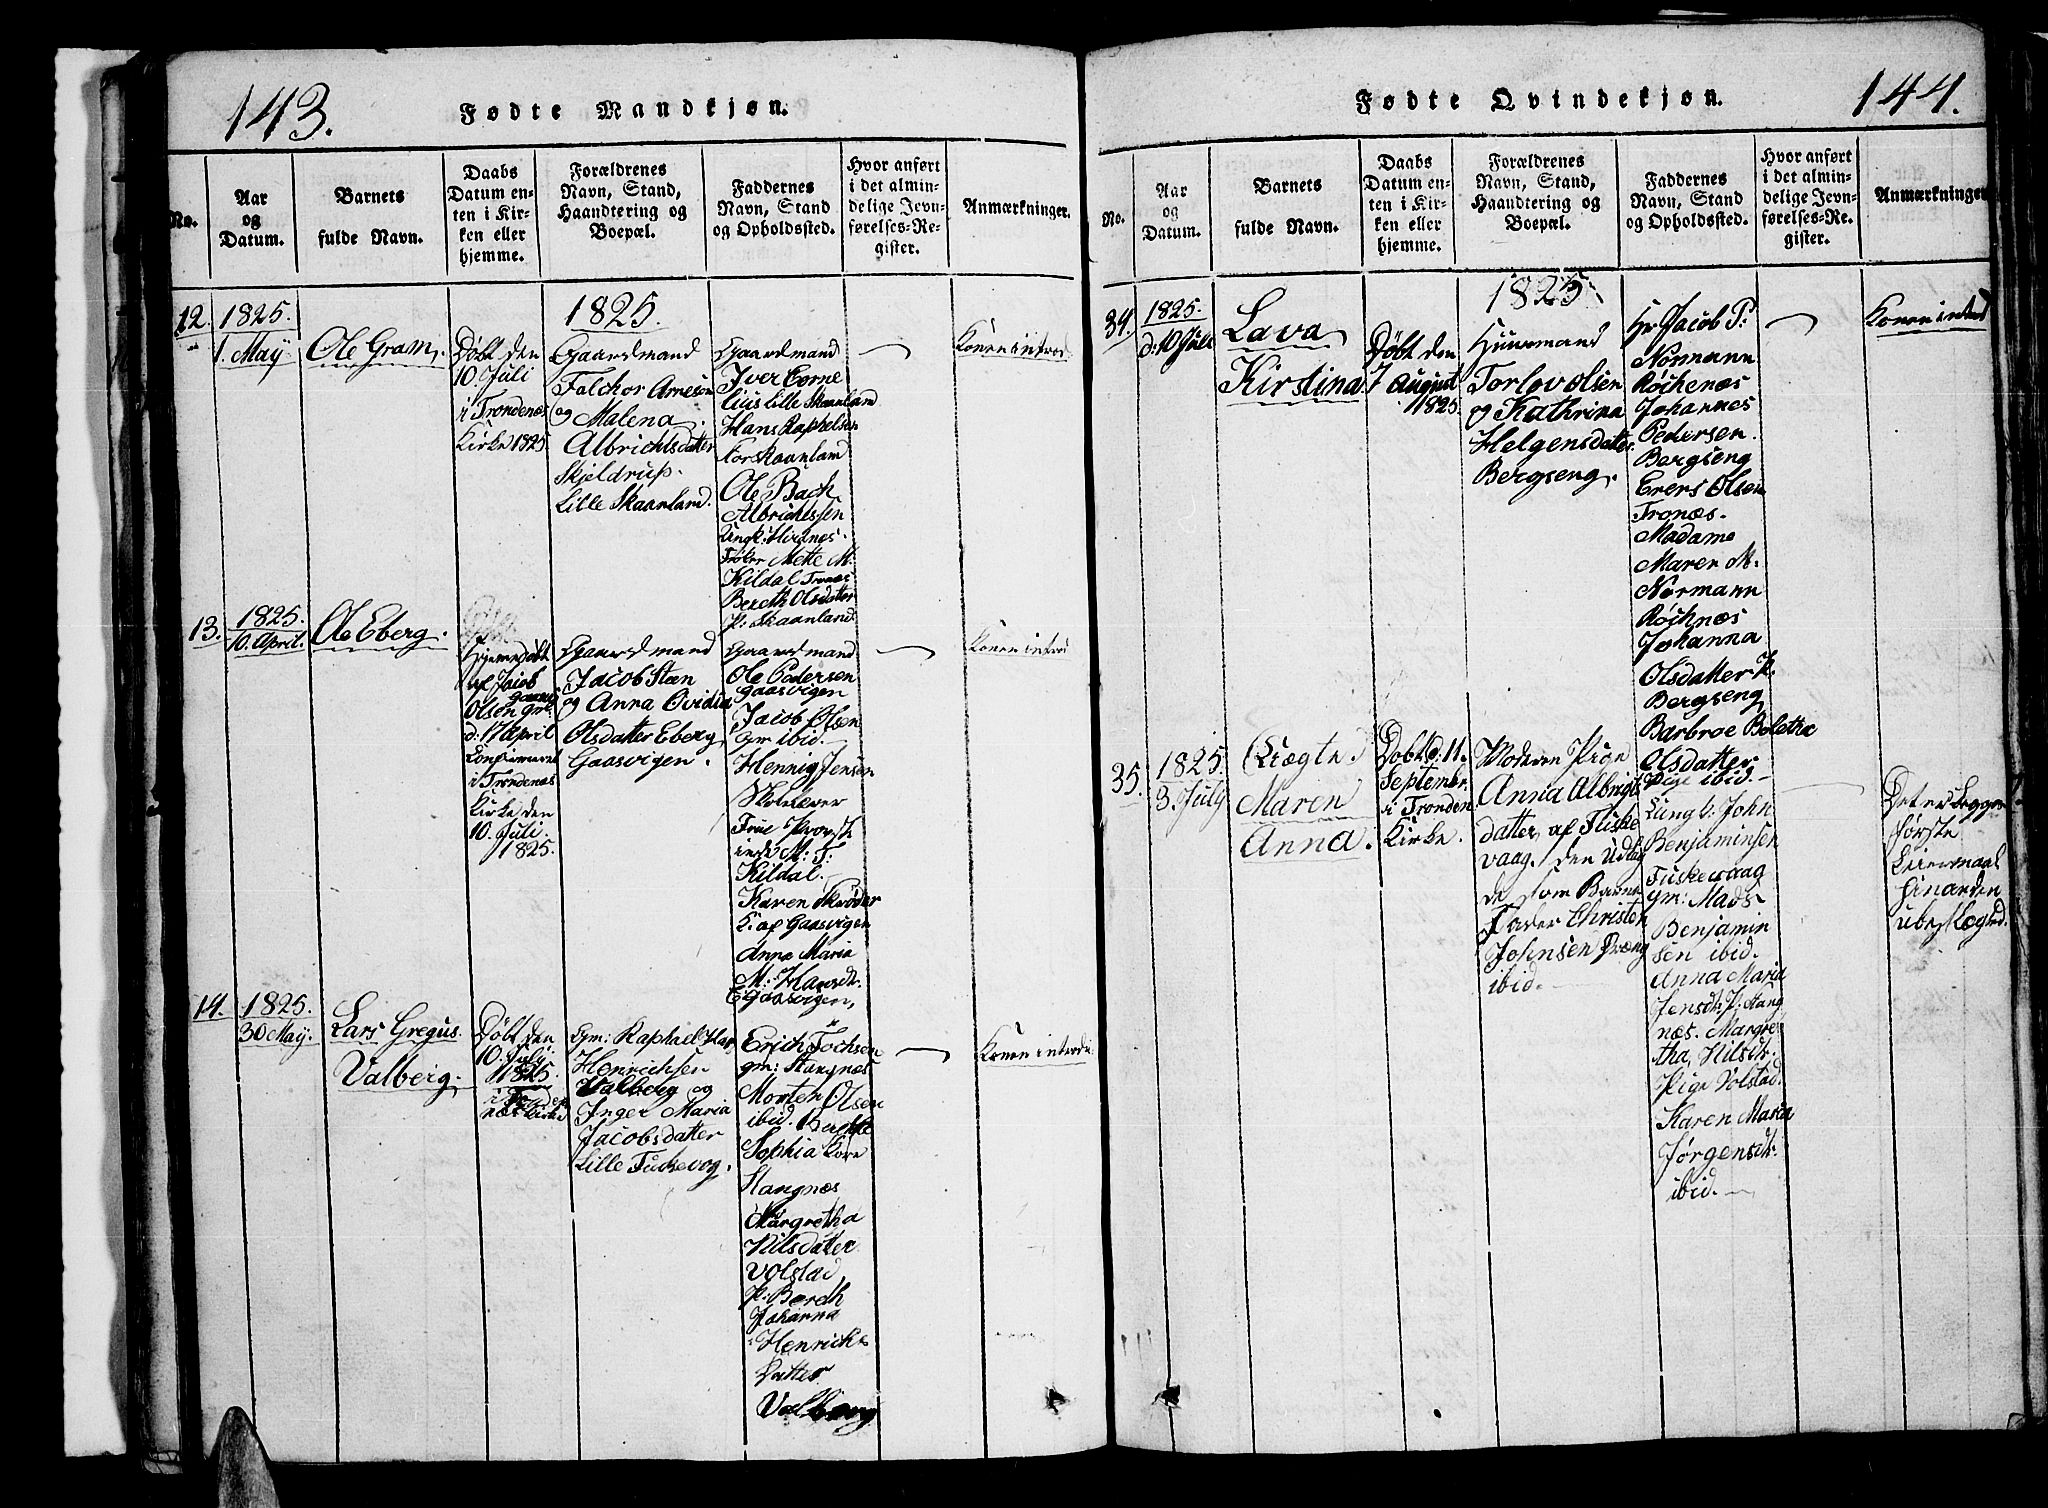 143.
Fødte Mandkjøn.
No.
Aar
og
Datum.
Barnets
fulde Navn.
Daabs
Datum en-
ten i Kir-
ken eller
hjemme.
Forældrenes
Navn, Stand,
Haandtering og
Boepæl.
Faddernes
Navn, Stand
og Opholdssted.
Hvor anført
i det almin-
delige Jevn-
førelses-Re-
gister.
Anmærkninger.
12.
1825.
1. May
Ole Gram.
Døbt den
10. Juli
i Trondenæs
Kirke 1825
1825.
Gaardmand
Falchor Arnesen
og Malena
Albrichtsdatter
Skjeldrup.
Lille Skaanland.
Gaardmand
Iver Corne
lius Lille Skaanland
Hans Raphelsen
Ole Bach
Albrichtsen
Mette M.
Kildal Tronæs
Bereth Olsdatter
P: Skaanland
Konen introd.
13.
1825.
10. April.
Ole Eberg.
Hjemedøbt
af Jacob
Olsen
d: 17 April
Confirmeret
i Trondenæs
Kirke den
10. Juli.
1825.
Gaardmand
Jacob Steen
og Anna Ovidia
Olsdatter Eberg
Gaasvigen.
Gaardmand
Ole Pedersen
Gaasvigen
Jacob Olsen
Gm ibid.
Hennig Jensen
Skolelærer
Frue Provst
inde M: F:
Kildal.
Karen Skrøder
K. af Gaasvigen
Anne Maria
M: Hansdt.
Gaasvigen,
Konen introd
14.
1825.
30 May.
Lars Gregus.
Valberg.
Døbt den
10. July
1825.
i Tronde
næs Kirke
Gm: Raphael
Henrichsen
Valberg og
Inger Maria
Jacobsdatter
Lille Fuskevog.
Erich Tochsen
gm: Stangnæs
Morten Olsen
ibid.
Sophia
Stangnæs
Margretha
Nilsdatter
Volstad
P: Berdh
Johanna
Henrichs
Datter
Valberg
Konen introd:
144.
Fødte Qvindekjøn.
No.
Aar
og
Datum.
Barnets
fulde Navn.
Daabs
Datum en-
ten i Kir-
ken eller
hjemme.
Forældrenes
Navn, Stand,
Haandtering og
Boepæl.
Faddernes
Navn, Stand
og Opholdssted.
Hvor anført
i det almin-
delige Jevn-
førelses-Re-
gister.
Anmærkninger
34.
1825.
d: 10 Juli
Lava
Kirstina
Døbt den
7 August
1825.
1825
Huusmand
Torlov Olsen
og Kathrina
Helgensdatter
Bergseng.
Hr Jacob P:
Normann
Røchenæs
Johannes
Pedersen
Bergseng
Erers Olsen
Tronæs.
Madame
Maren M.
Normann
Røchnæs
Johanna
Olsdatter P.
Bergseng
Barbroe Bolethe
Olsdatter
Pige ibid.
Konen introd
35.
1825.
3. July
(Uægte)
Maren
Anna.
Døbt d: 11.
September
i Tronden
Kirke.
Moderen Pige
Anna Albrigt
datter af Fuske
vaag. Den Udlag
de som Barne
Fader Christen
Johnsen Dreng
ibid.
Ungk: John
Benjaminsen
Fuskevaag
gm: Mads
Benjamin
sen ibid.
Anna Maria
Jensdt: P: Stang
næs. Margre
tha Nilsdt:
Pige Volstad.
Karen Maria
Jørgensdt:
ibid.
Det er begges
første
Leiermaal